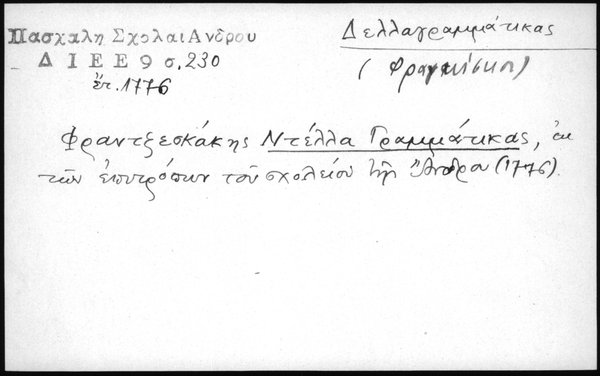 Πασχαλη Σχολαι Ανδρου
Δ Ι Ε Ε 9 σ. 230
ἔτ. 1776
Δελλαγραμμάτικας
(Φραγκίσκος)
Φραντζεσκάκης Ντέλλα Γραμμάτικας, ἐκ
τῶν ἐπιτρόπων τοῦ σχολείου τῆς Ἄνδρου (1776).